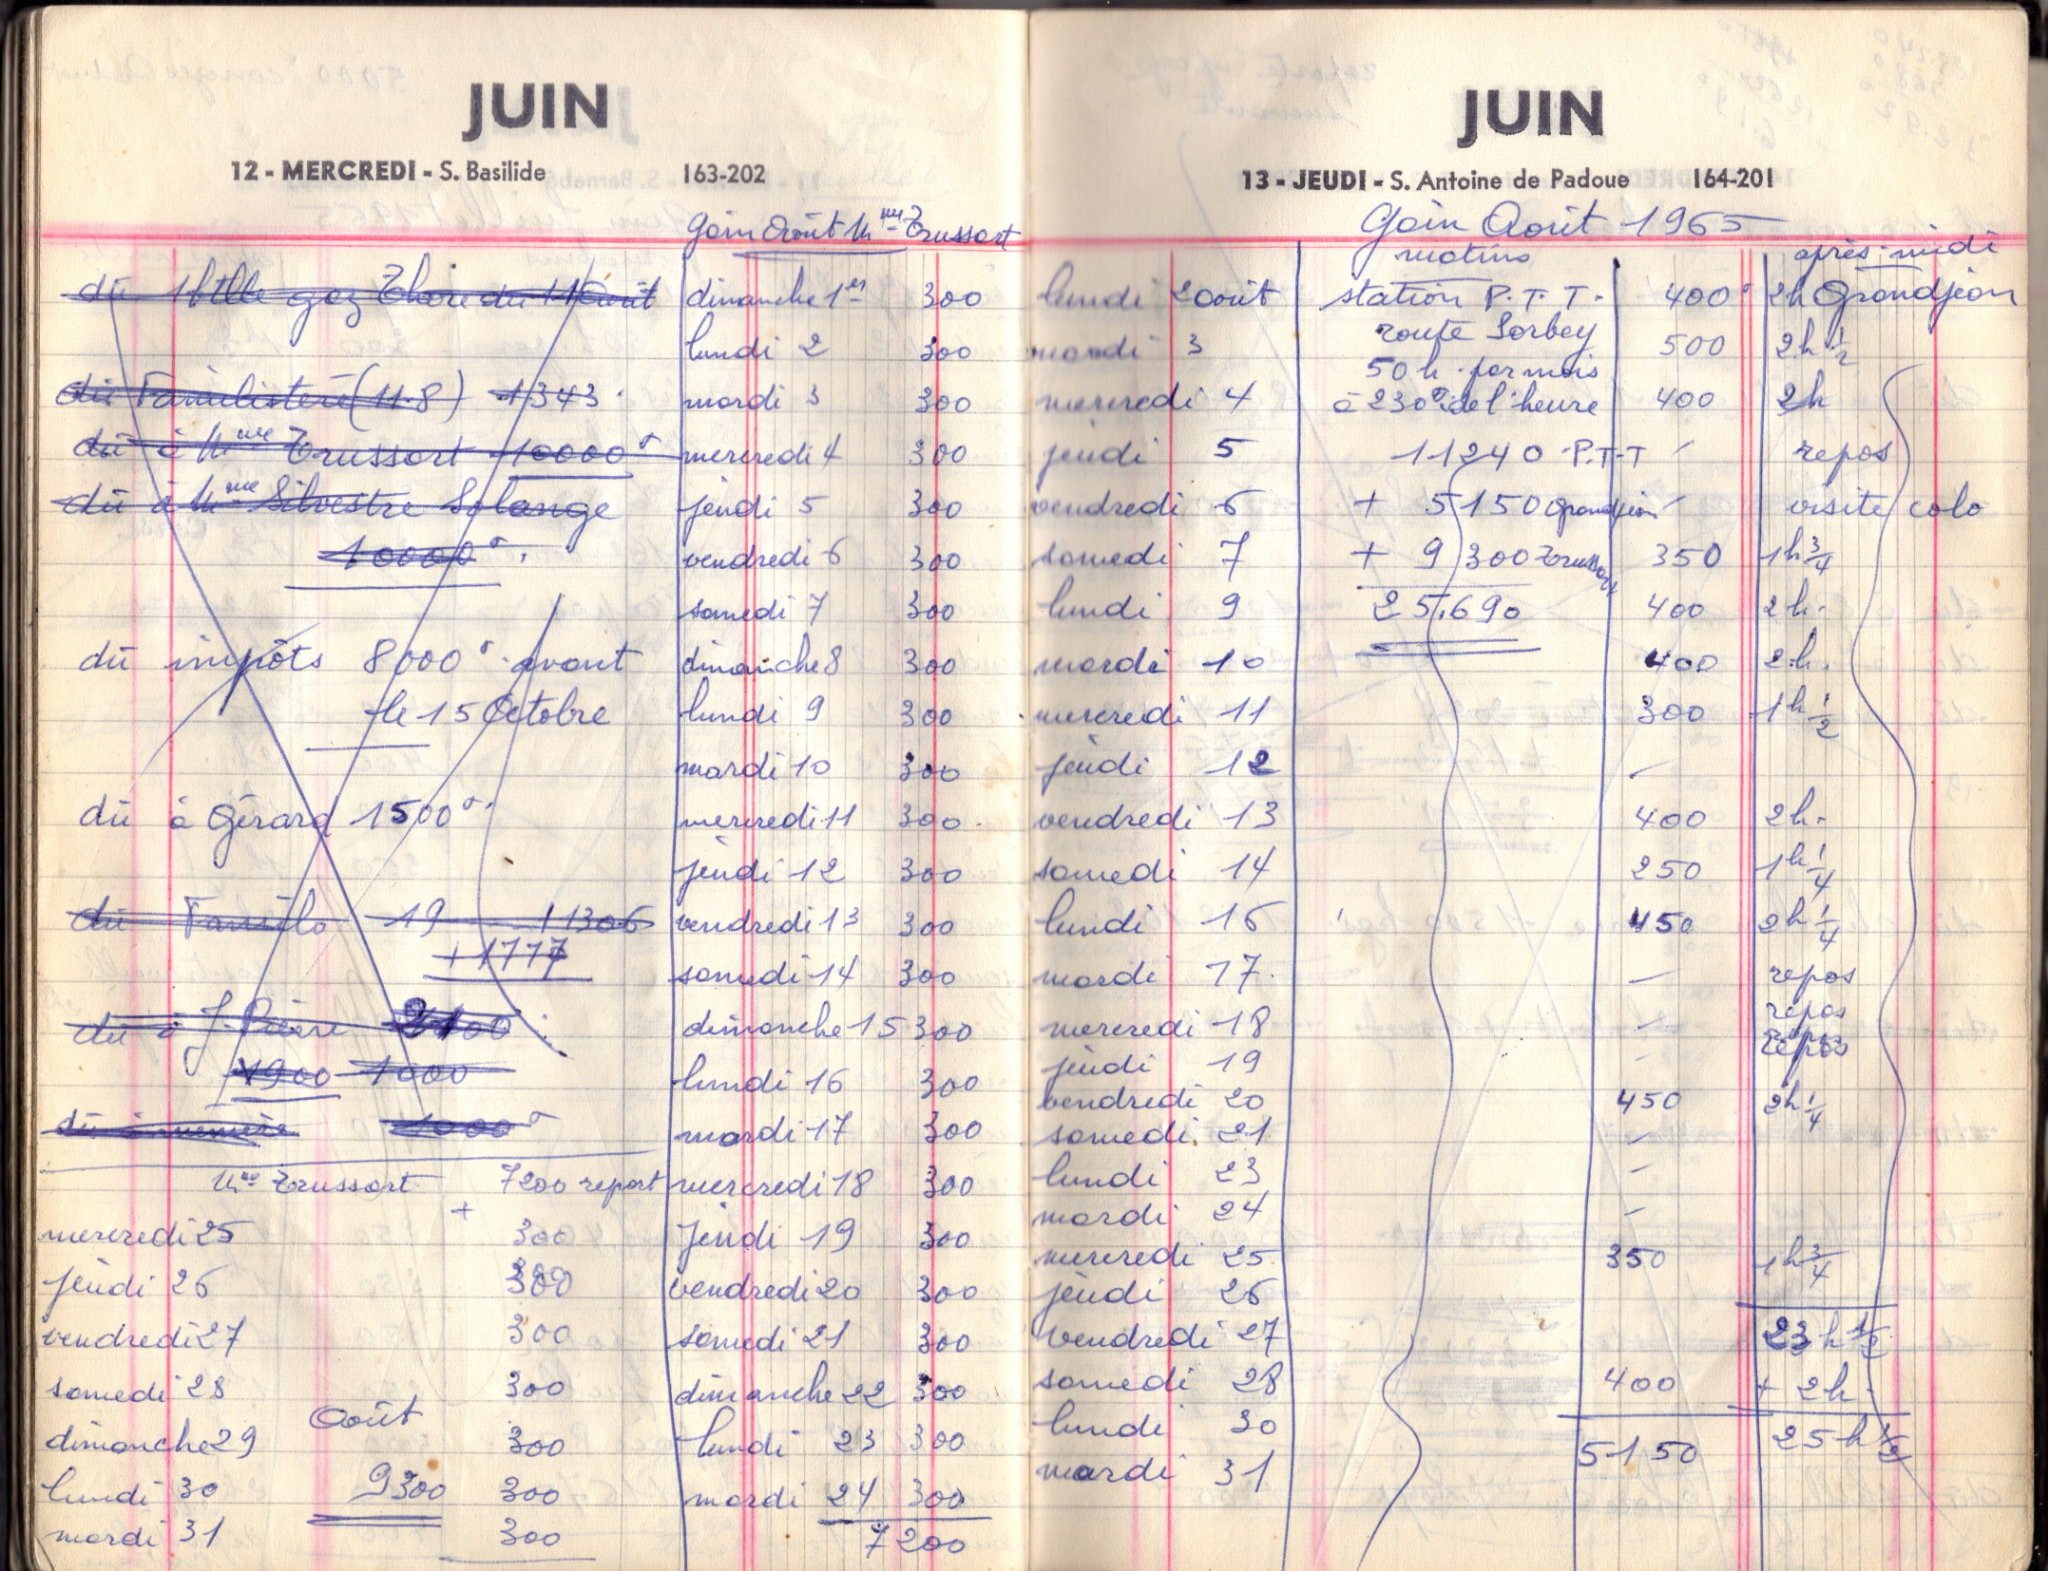 JUIN
12 - MERCREDI - S. Basilide 163-202
dû 1 btlle gaz Thore du 11 Août
dû Familistère (11.8) 1343
dû à Mme Trussort 10000
dû à Mme Silvestre Solange
10000
dû impôts 8000 avant
le 15 Octobre
dû à Gérard 1500
dû Familo 19 11306
+ 1777
dû à J. Pierre 2100
1900 1000
dû à mémère 1000
Mme Trussort 7200 report
+
mercredi 25 300
jeudi 26 300
vendredi 27 300
samedi 28 300
Août
dimanche 29 300
lundi 30 9300 300
mardi 31 300
Gain Août Mme Trussort
dimanche 1er 300
lundi 2 300
mardi 3 300
mercredi 4 300
jeudi 5 300
vendredi 6 300
samedi 7 300
dimanche 8 300
lundi 9 300
mardi 10 300
mercredi 11 300
jeudi 12 300
vendredi 13 300
samedi 14 300
dimanche 15 300
lundi 16 300
mardi 17 300
mercredi 18 300
jeudi 19 300
vendredi 20 300
samedi 21 300
dimanche 22 300
lundi 23 300
mardi 24 300
7200
JUIN
13 - JEUDI - S. Antoine de Padoue 164-201
Gain Août 1965
matins après-midi
lundi 2 août station P.T.T. 400 2h Grandjean
mardi 3 route Sorbey 500 2h 1/2
50 h. par mois
mercredi 4 à 230 de l'heure 400 2h
jeudi 5 11240 P.T.T - repos
vendredi 6 + 5150 Grandjean - visite colo
samedi 7 + 9300 Trussort 350 1h 3/4
lundi 9 25.690 400 2h.
mardi 10 400 2h.
mercredi 11 300 1h 1/2
jeudi 12 -
vendredi 13 400 2h.
samedi 14 250 1h 1/4
lundi 16 450 2h 1/4
mardi 17. - repos
mercredi 18 - repos
jeudi 19 - repos
vendredi 20 450 2h 1/4
samedi 21 -
lundi 23 -
mardi 24 -
mercredi 25 350 1h 3/4
jeudi 26
vendredi 27 23 h 1/2
samedi 28 400 + 2h
lundi 30
5150 25 h 1/2
mardi 31